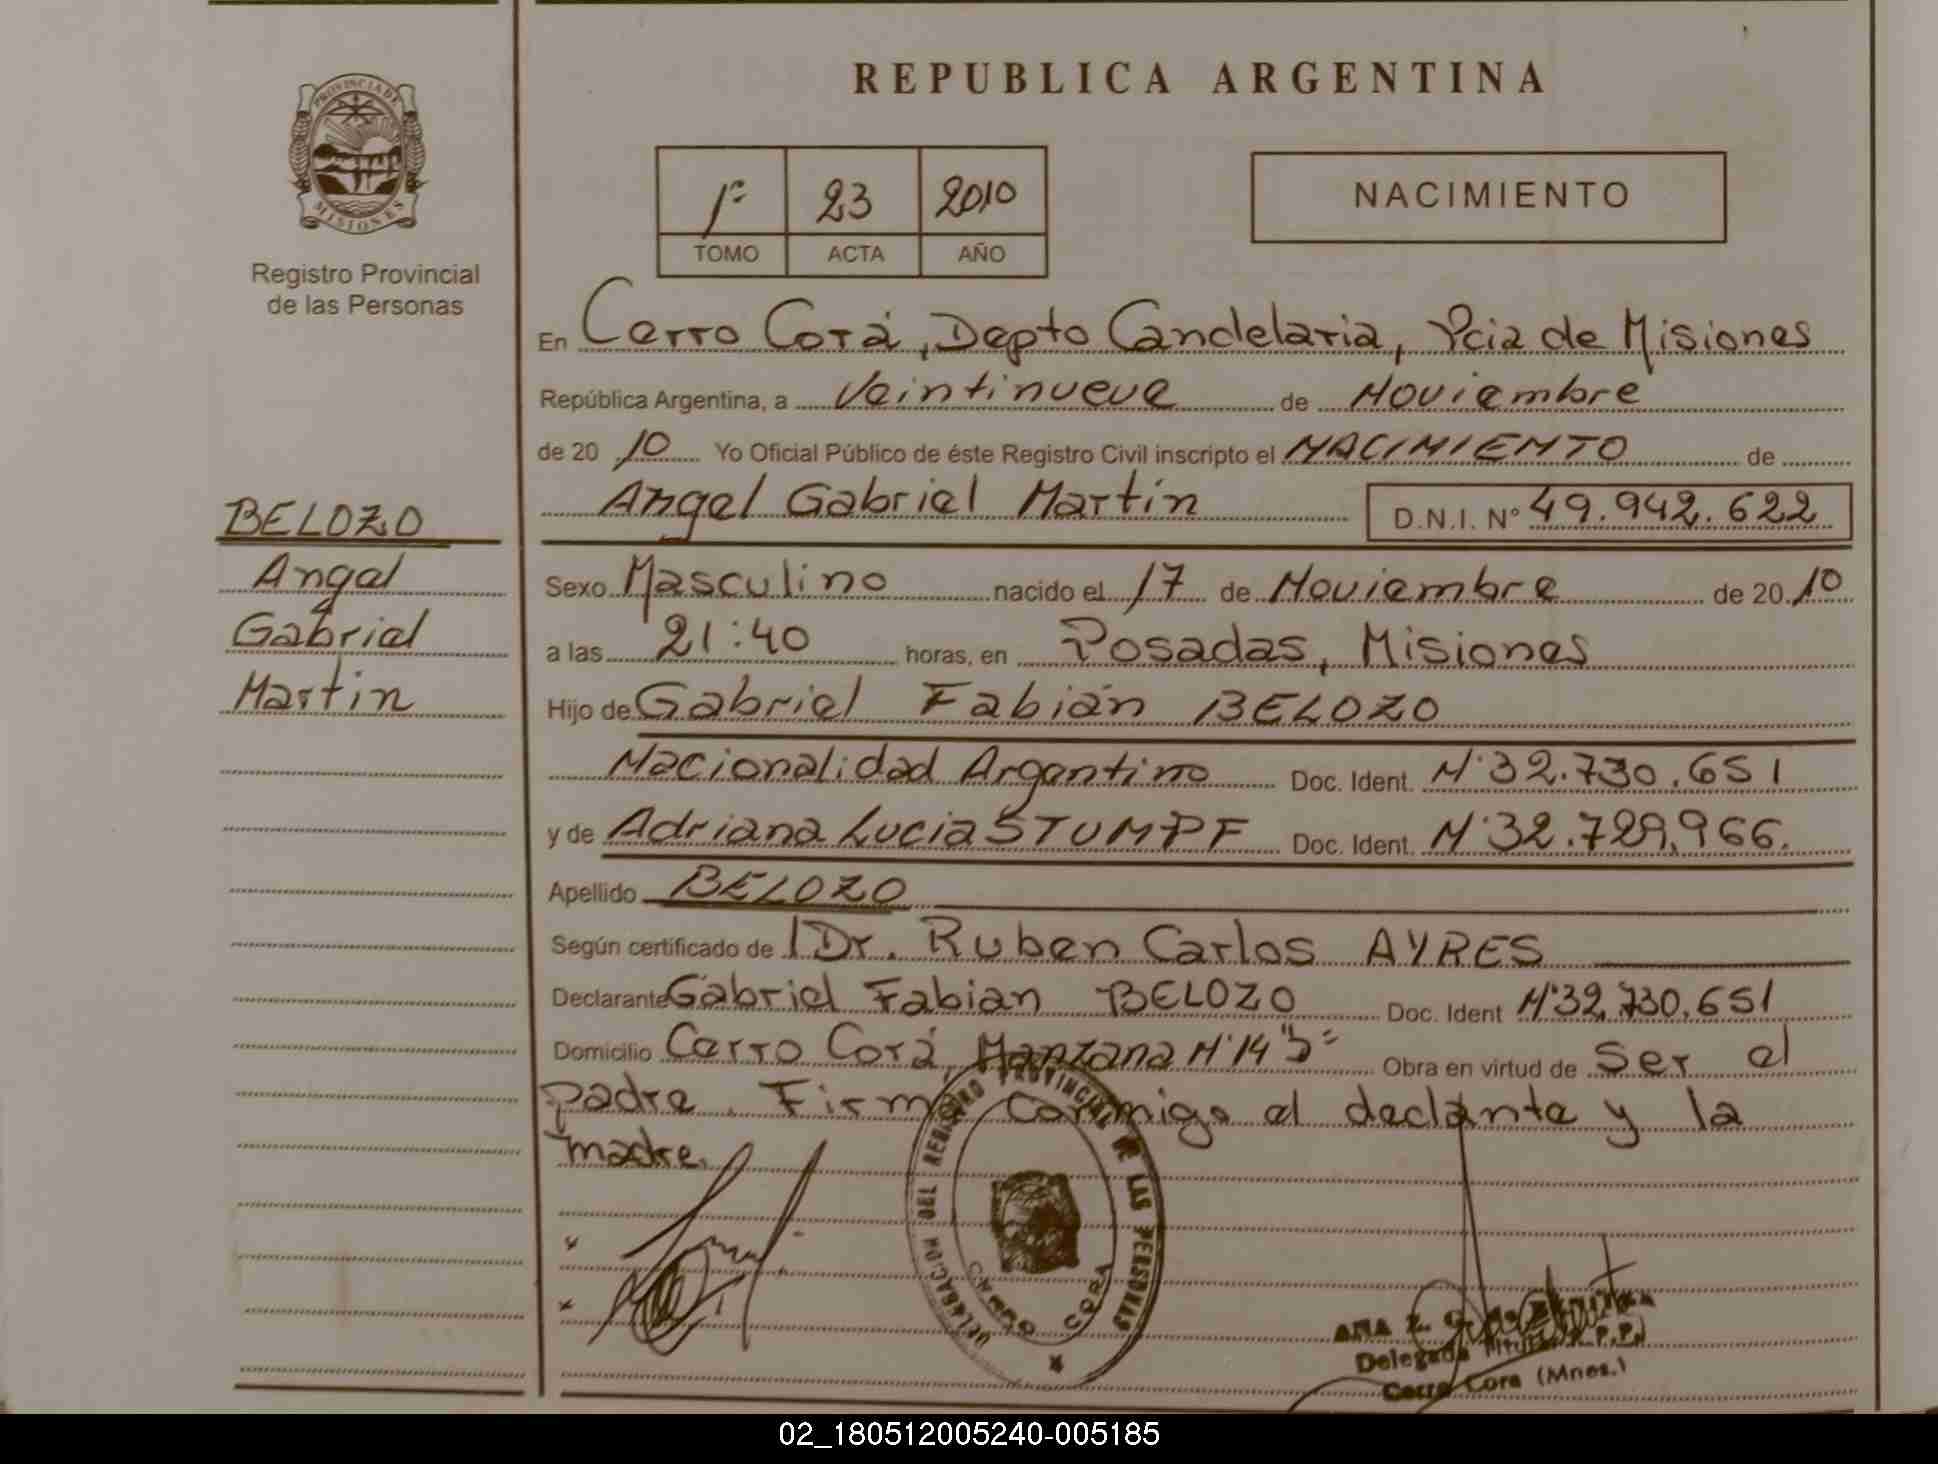 REPUBLICA ARGENTINA
PROVINCIA DE
MISIONES
Registro Provincial
de las Personas
1º 23 2010
TOMO ACTA AÑO
NACIMIENTO
En Cerro Corá, Depto Candelaria, Pcia de Misiones
República Argentina, a Veintinueve de Noviembre
de 20 10 Yo Oficial Público de éste Registro Civil inscripto el NACIMIENTO de
Angel Gabriel Martín D.N.I. N° 49.942.622
BELOZO
Angel
Gabriel
Martin
Sexo Masculino nacido el 17 de Noviembre de 20 10
a las 21:40 horas, en Posadas, Misiones
Hijo de Gabriel Fabián BELOZO
Nacionalidad Argentino Doc. Ident. N°32.730.651
y de Adriana Lucia STUMPF Doc. Ident. N°32.729.966.
Apellido BELOZO
Según certificado de Dr. Ruben Carlos AYRES
Declarante Gabriel Fabian BELOZO Doc. Ident N°32.730.651
Domicilio Cerro Corá, Manzana N°14 Obra en virtud de Ser el
padre. Firma conmigo el declante y la
madre.
DELEGACION DEL REGISTRO PROVINCIAL DE LAS PERSONAS
CERRO CORA
ANA
Delegada Titular R.P.P.
Cerro Cora (Mnes.)
02_180512005240-005185